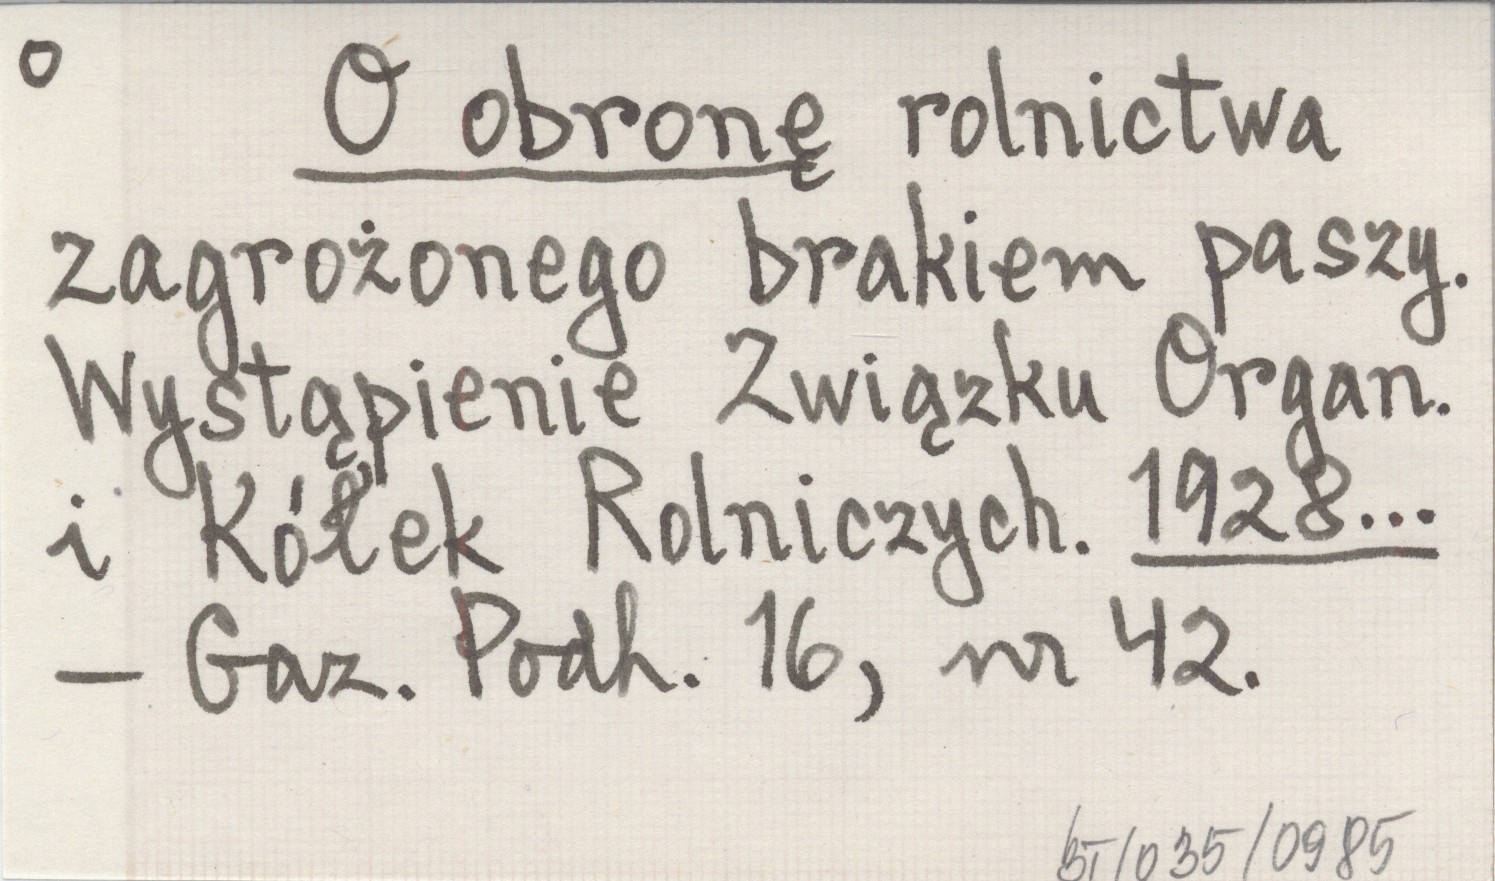 o O obronę rolnictwa
zagrożonego brakiem paszy.
Wystąpienie Związku Organ.
i Kółek Rolniczych. 1928...
– Gaz. Podh. 16, nr 42.
BT/035/0985